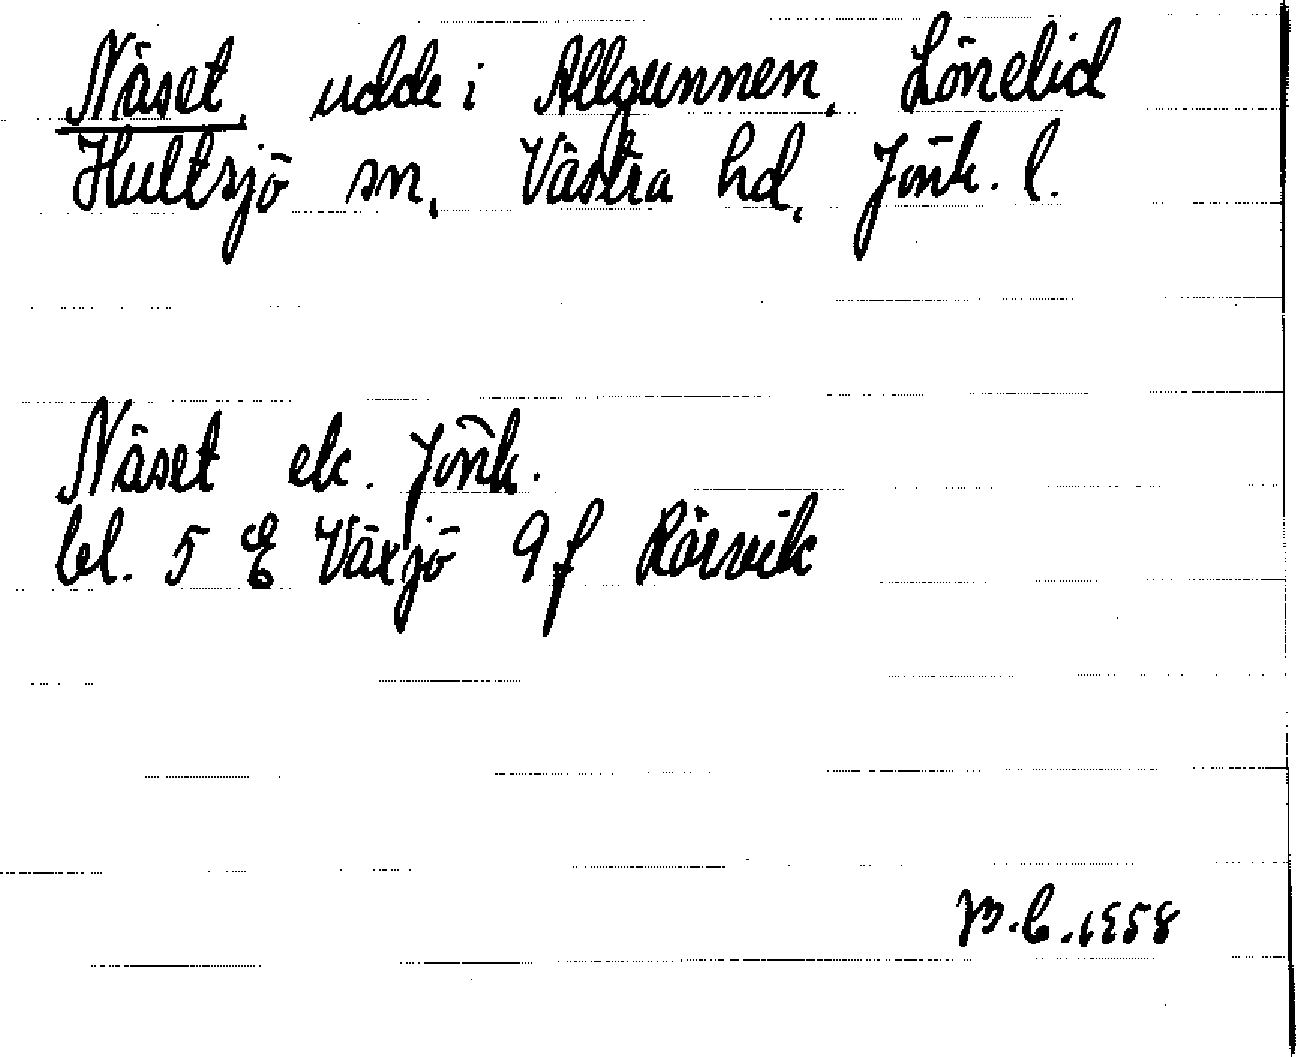 Näset, udde i Allgunnen, Lönelid
Hultsjö sn, Västra hd, Jönk. l.
Näset ek. Jönk.
bl. 5 E Växjö 9 f Rörvik
B.E. 1958